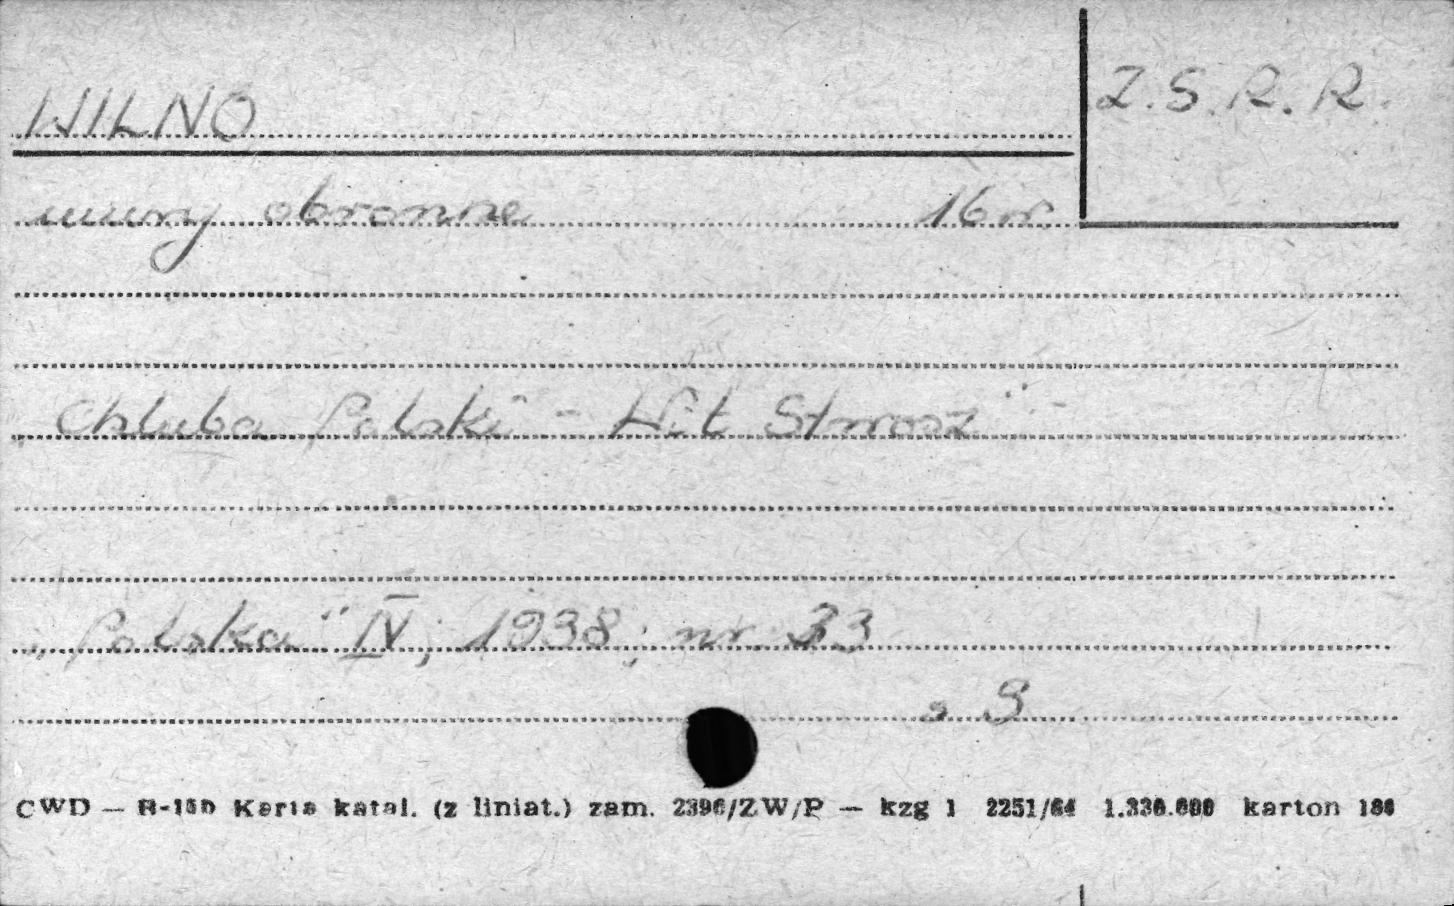 WILNO
Z.S.R.R.
mury obronne 16 w.
„Chluba Polski" - Wit Stwosz" -
„Polska" IV, 1938; nr. 33
s. 9
CWD — H-150 Karta katal. (z liniat.) zam. 2396/ZW/P — kzg 1 2251/64 1.330.000 karton 180